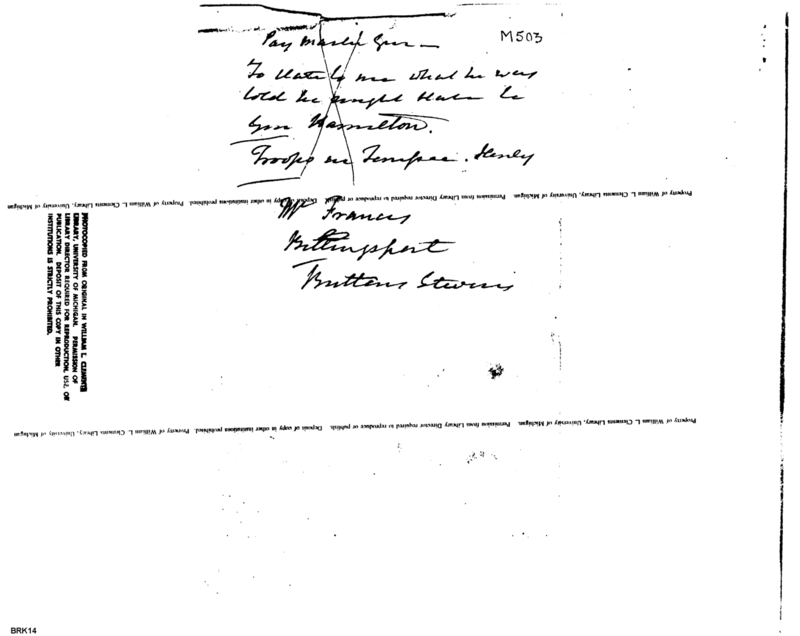 M503
Pay Master Gen —
To State to me what he was
told he might State to
Gen Hamilton.
Troops in
Property of William L. Clements Library, University of Michigan. Permission from Library Director required to reproduce or publish. Deposit of copy in other institutions prohibited. Property of William L. Clements Library, University of Michigan
Mr Francis
Billingsport
Buttons
PHOTOCOPIED FROM ORIGINAL IN WILLIAM L. CLEMENTS
LIBRARY, UNIVERSITY OF MICHIGAN. PERMISSION OF
LIBRARY DIRECTOR REQUIRED FOR REPRODUCTION, USE, OR
PUBLICATION. DEPOSIT OF THIS COPY IN OTHER
INSTITUTIONS IS STRICTLY PROHIBITED.
Property of William L. Clements Library, University of Michigan. Permission from Library Director required to reproduce or publish. Deposit of copy in other institutions prohibited. Property of William L. Clements Library, University of Michigan
BRK14